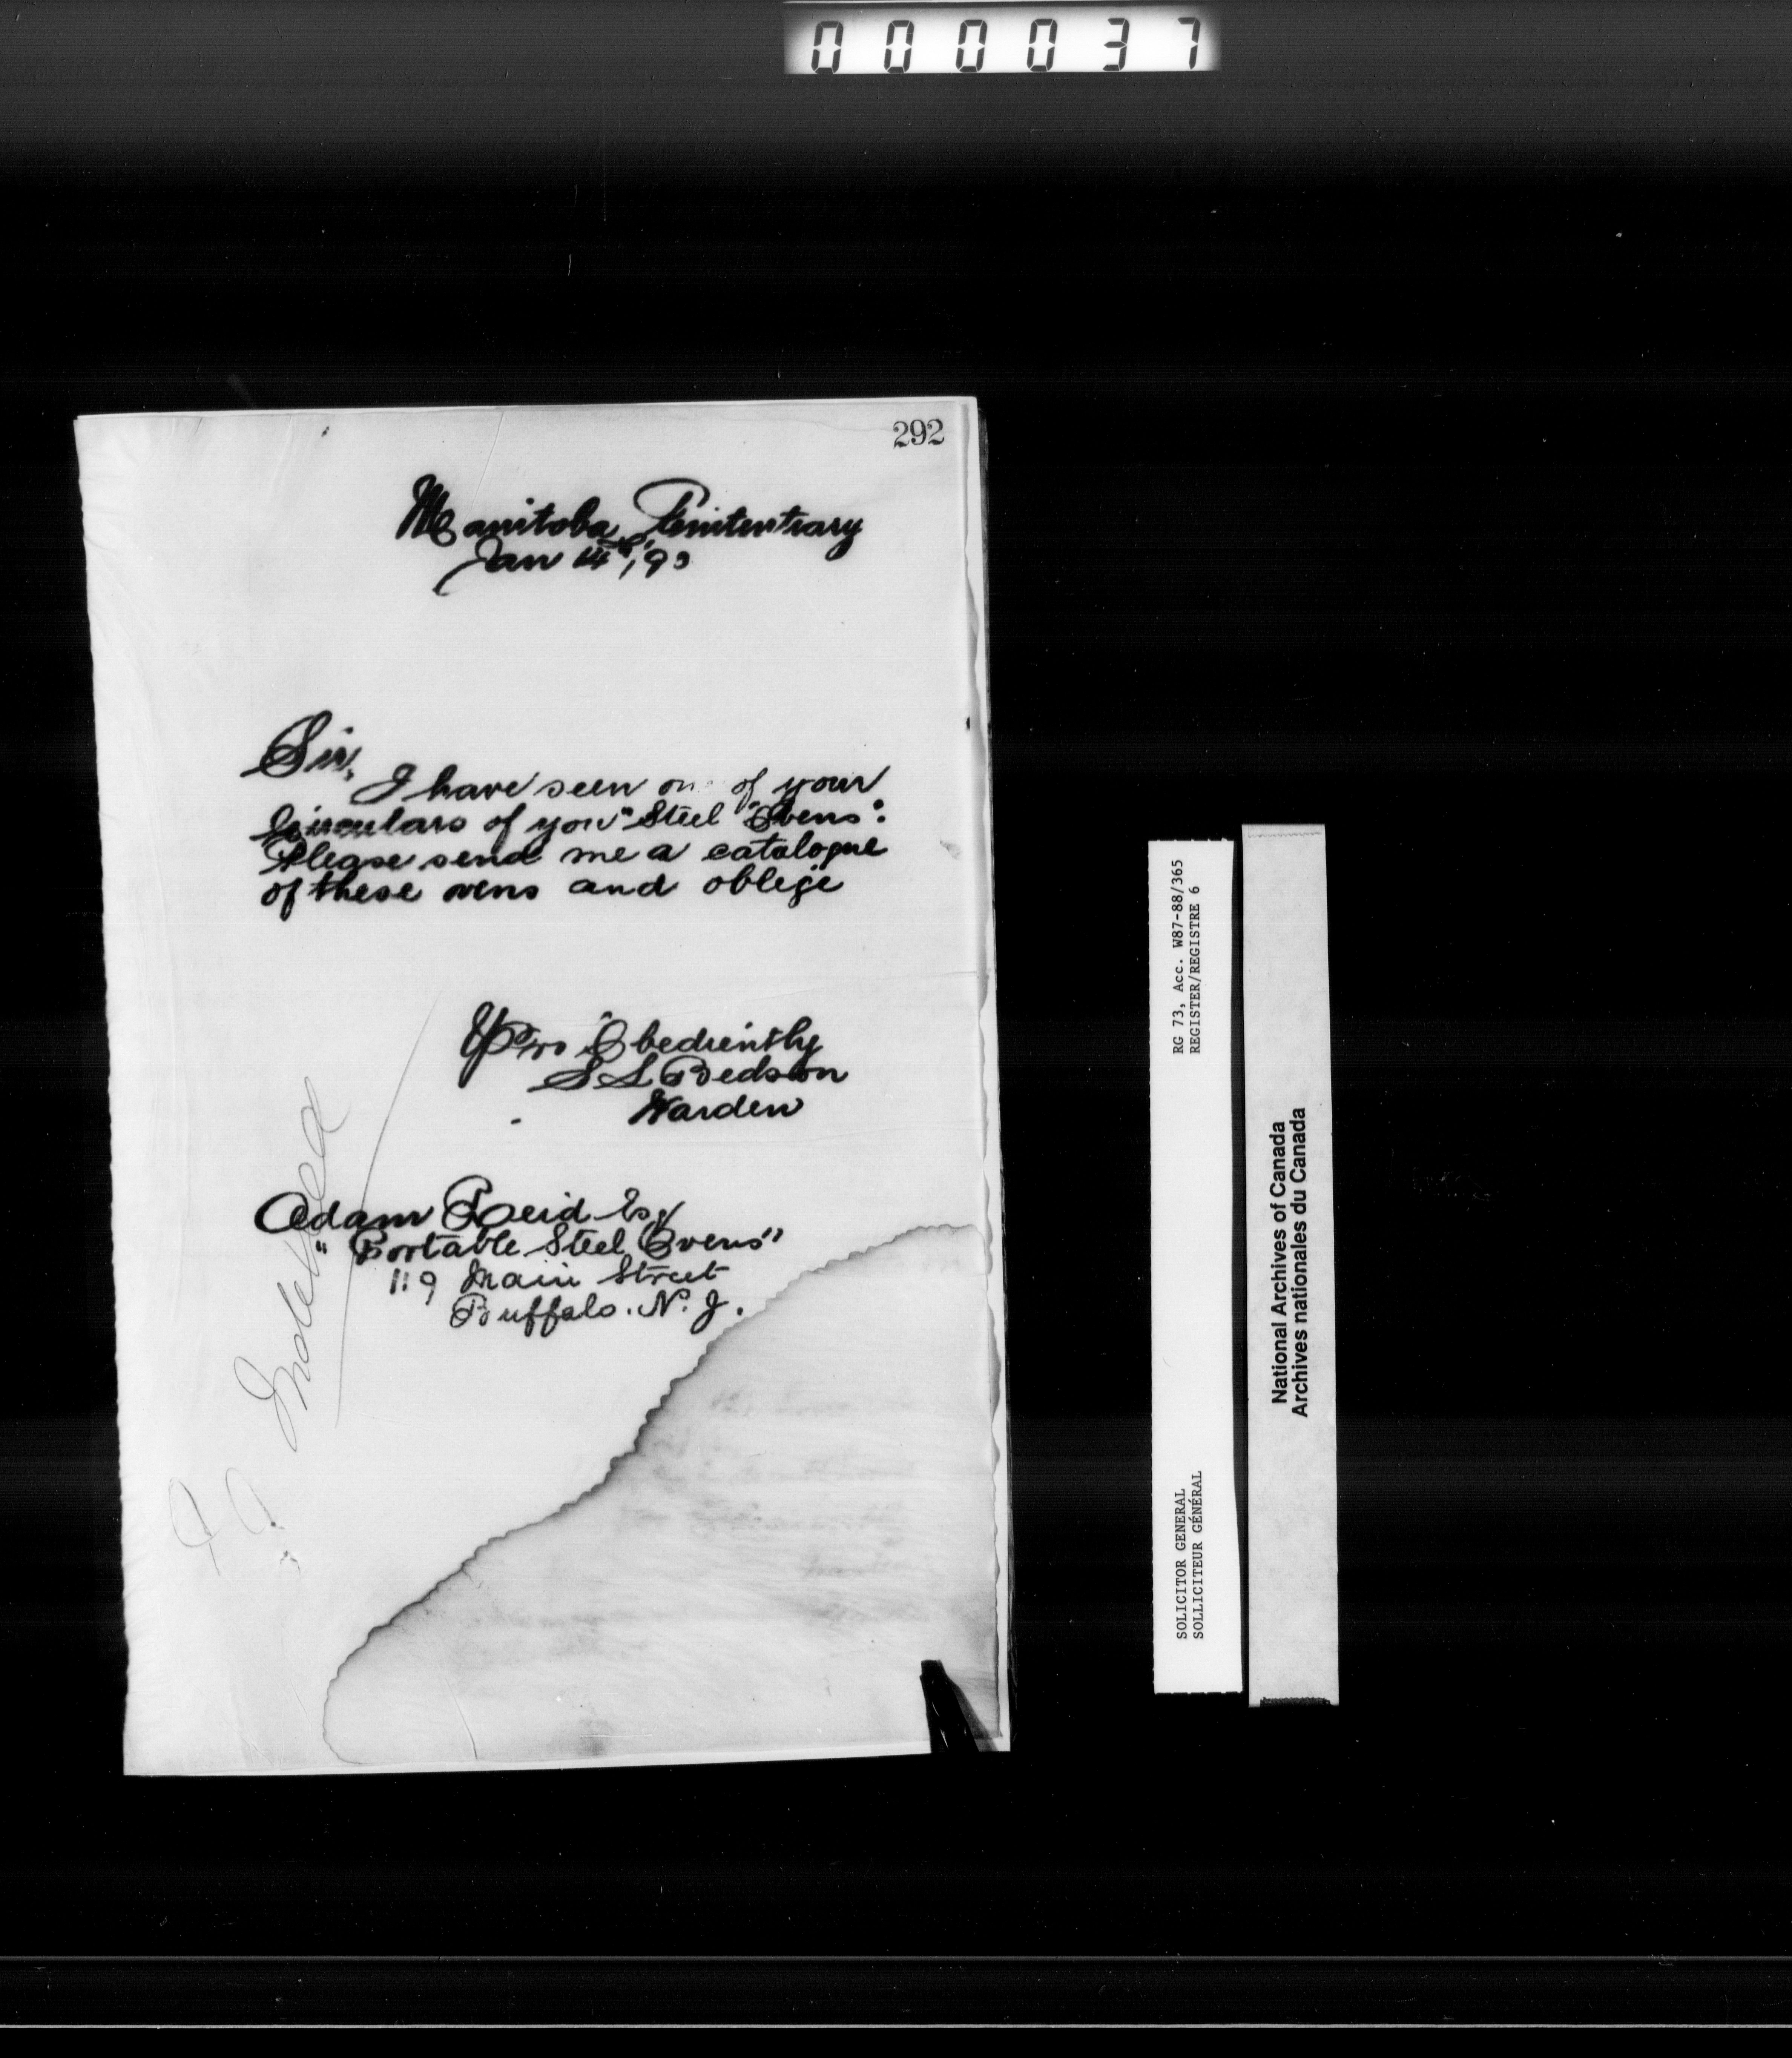 000037
292
Manitoba Penitentiary
Jan 14th, 90
Sir,
I have seen on of your
Circulars of your "Steel "Ovens".
Please send me a catalogue
of these ovens and oblege
Yours Obediently
S L Bedson
Warden
Adam Reid Esq
"Portable Steel Ovens"
119 Main Street
Buffalo. N. J.
RG 73, Acc. W87-88/365
REGISTER/REGISTRE 6
SOLICITOR GENERAL
SOLLICITEUR GÉNÉRAL
National Archives of Canada
Archives nationales du Canada